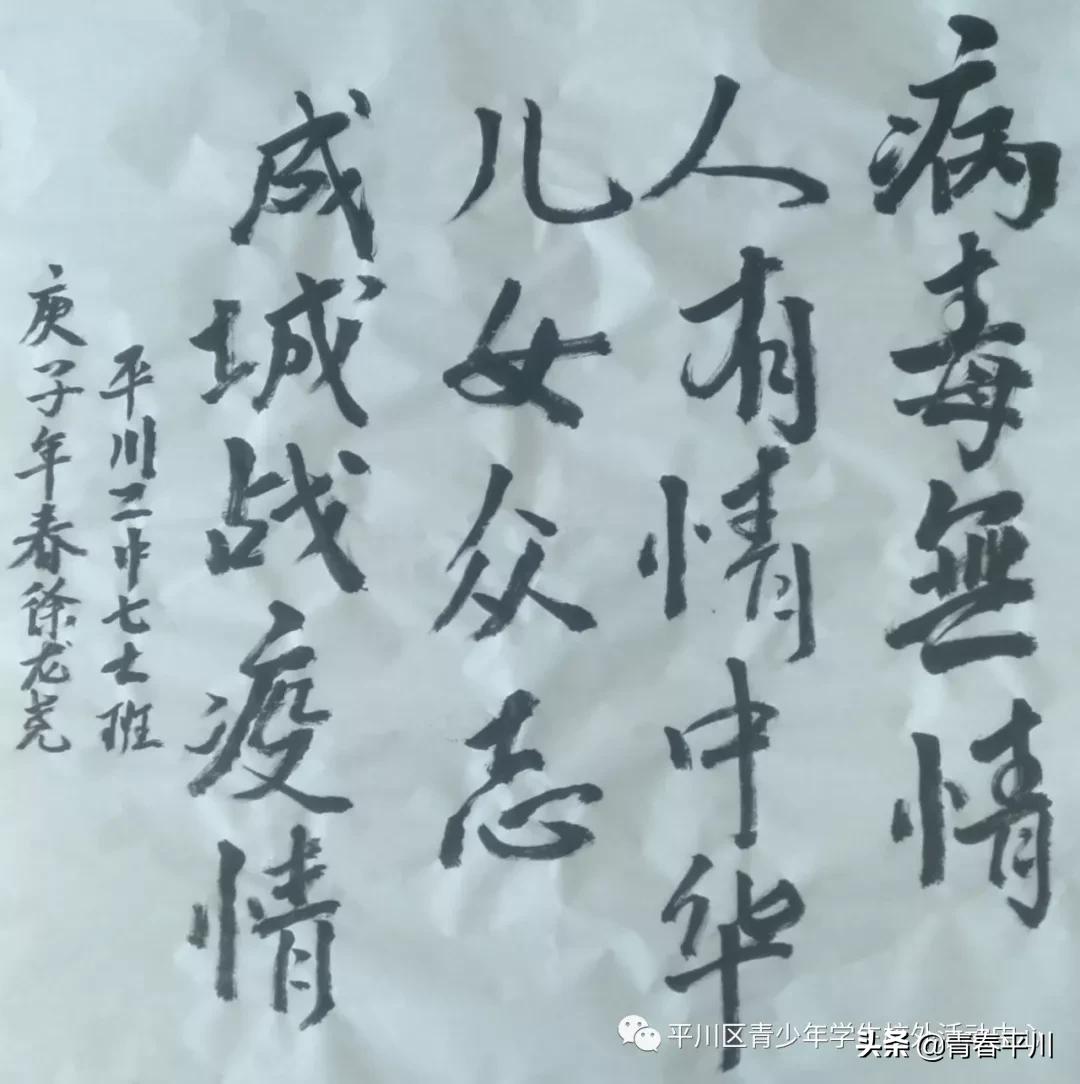 病毒無情
人有情中华
儿女众志
成城战疫情
平川二中七七班
庚子年春徐龙尧
平川区青少年学生校外活动中心
头条 @青春平川